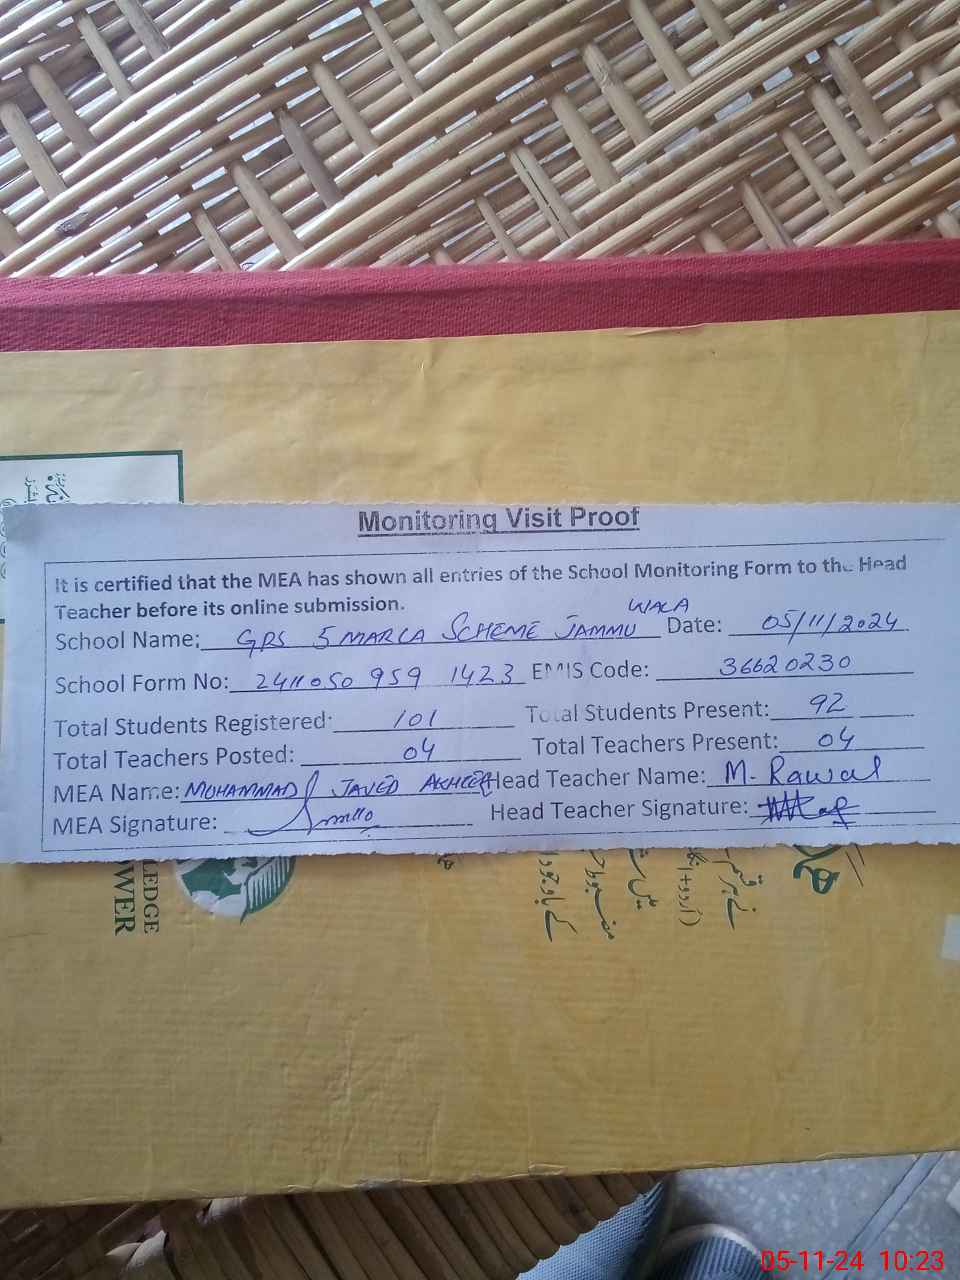 Monitoring Visit Proof
It is certified that the MEA has shown all entries of the School Monitoring Form to the Head
Teacher before its online submission.
School Name: GPS 5 MARLA SCHEME JAMMU WALA Date: 05/11/2024
School Form No: 2411050 959 1423 EMIS Code: 36620230
Total Students Registered: 101 Total Students Present: 92
Total Teachers Posted: 04 Total Teachers Present: 04
MEA Name: MUHAMMAD JAVED AKHTER Head Teacher Name: M. Rawal
MEA Signature: Head Teacher Signature:
LEDGE
OWER
05-11-24 10:23